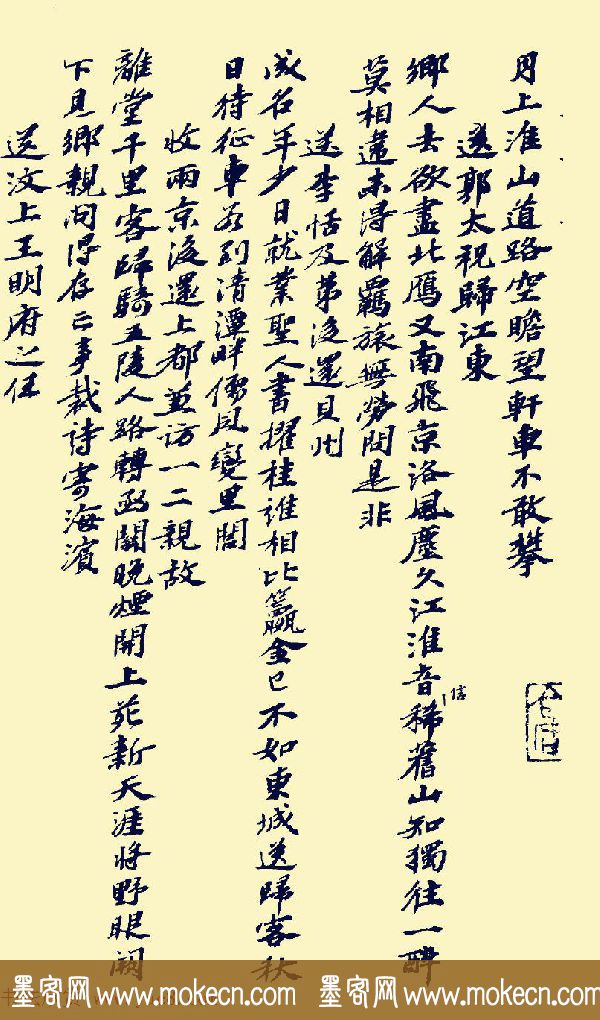 月上淮山道路空瞻望軒車不敢攀
送郭太祝歸江東
鄉人去欲盡北鴈又南飛京洛風塵久江淮音稀舊山知獨往一醉
信
莫相違未得解羈旅無勞問是非
送李恬及第後還貝州
成名年少日就業聖人書擢桂誰相比籯金已不如東城送歸客秋
日待征車若到清潭畔儒風變里閭
收兩京後還上都兼訪一二親故
離堂千里客歸騎五陵人路轉函關晚煙開上苑新天涯將野眼闕
下見鄉親問得存亡事裁詩寄海濱
送汶上王明府之任
墨客网 www.mokecn.com 墨客网 www.mokecn.com